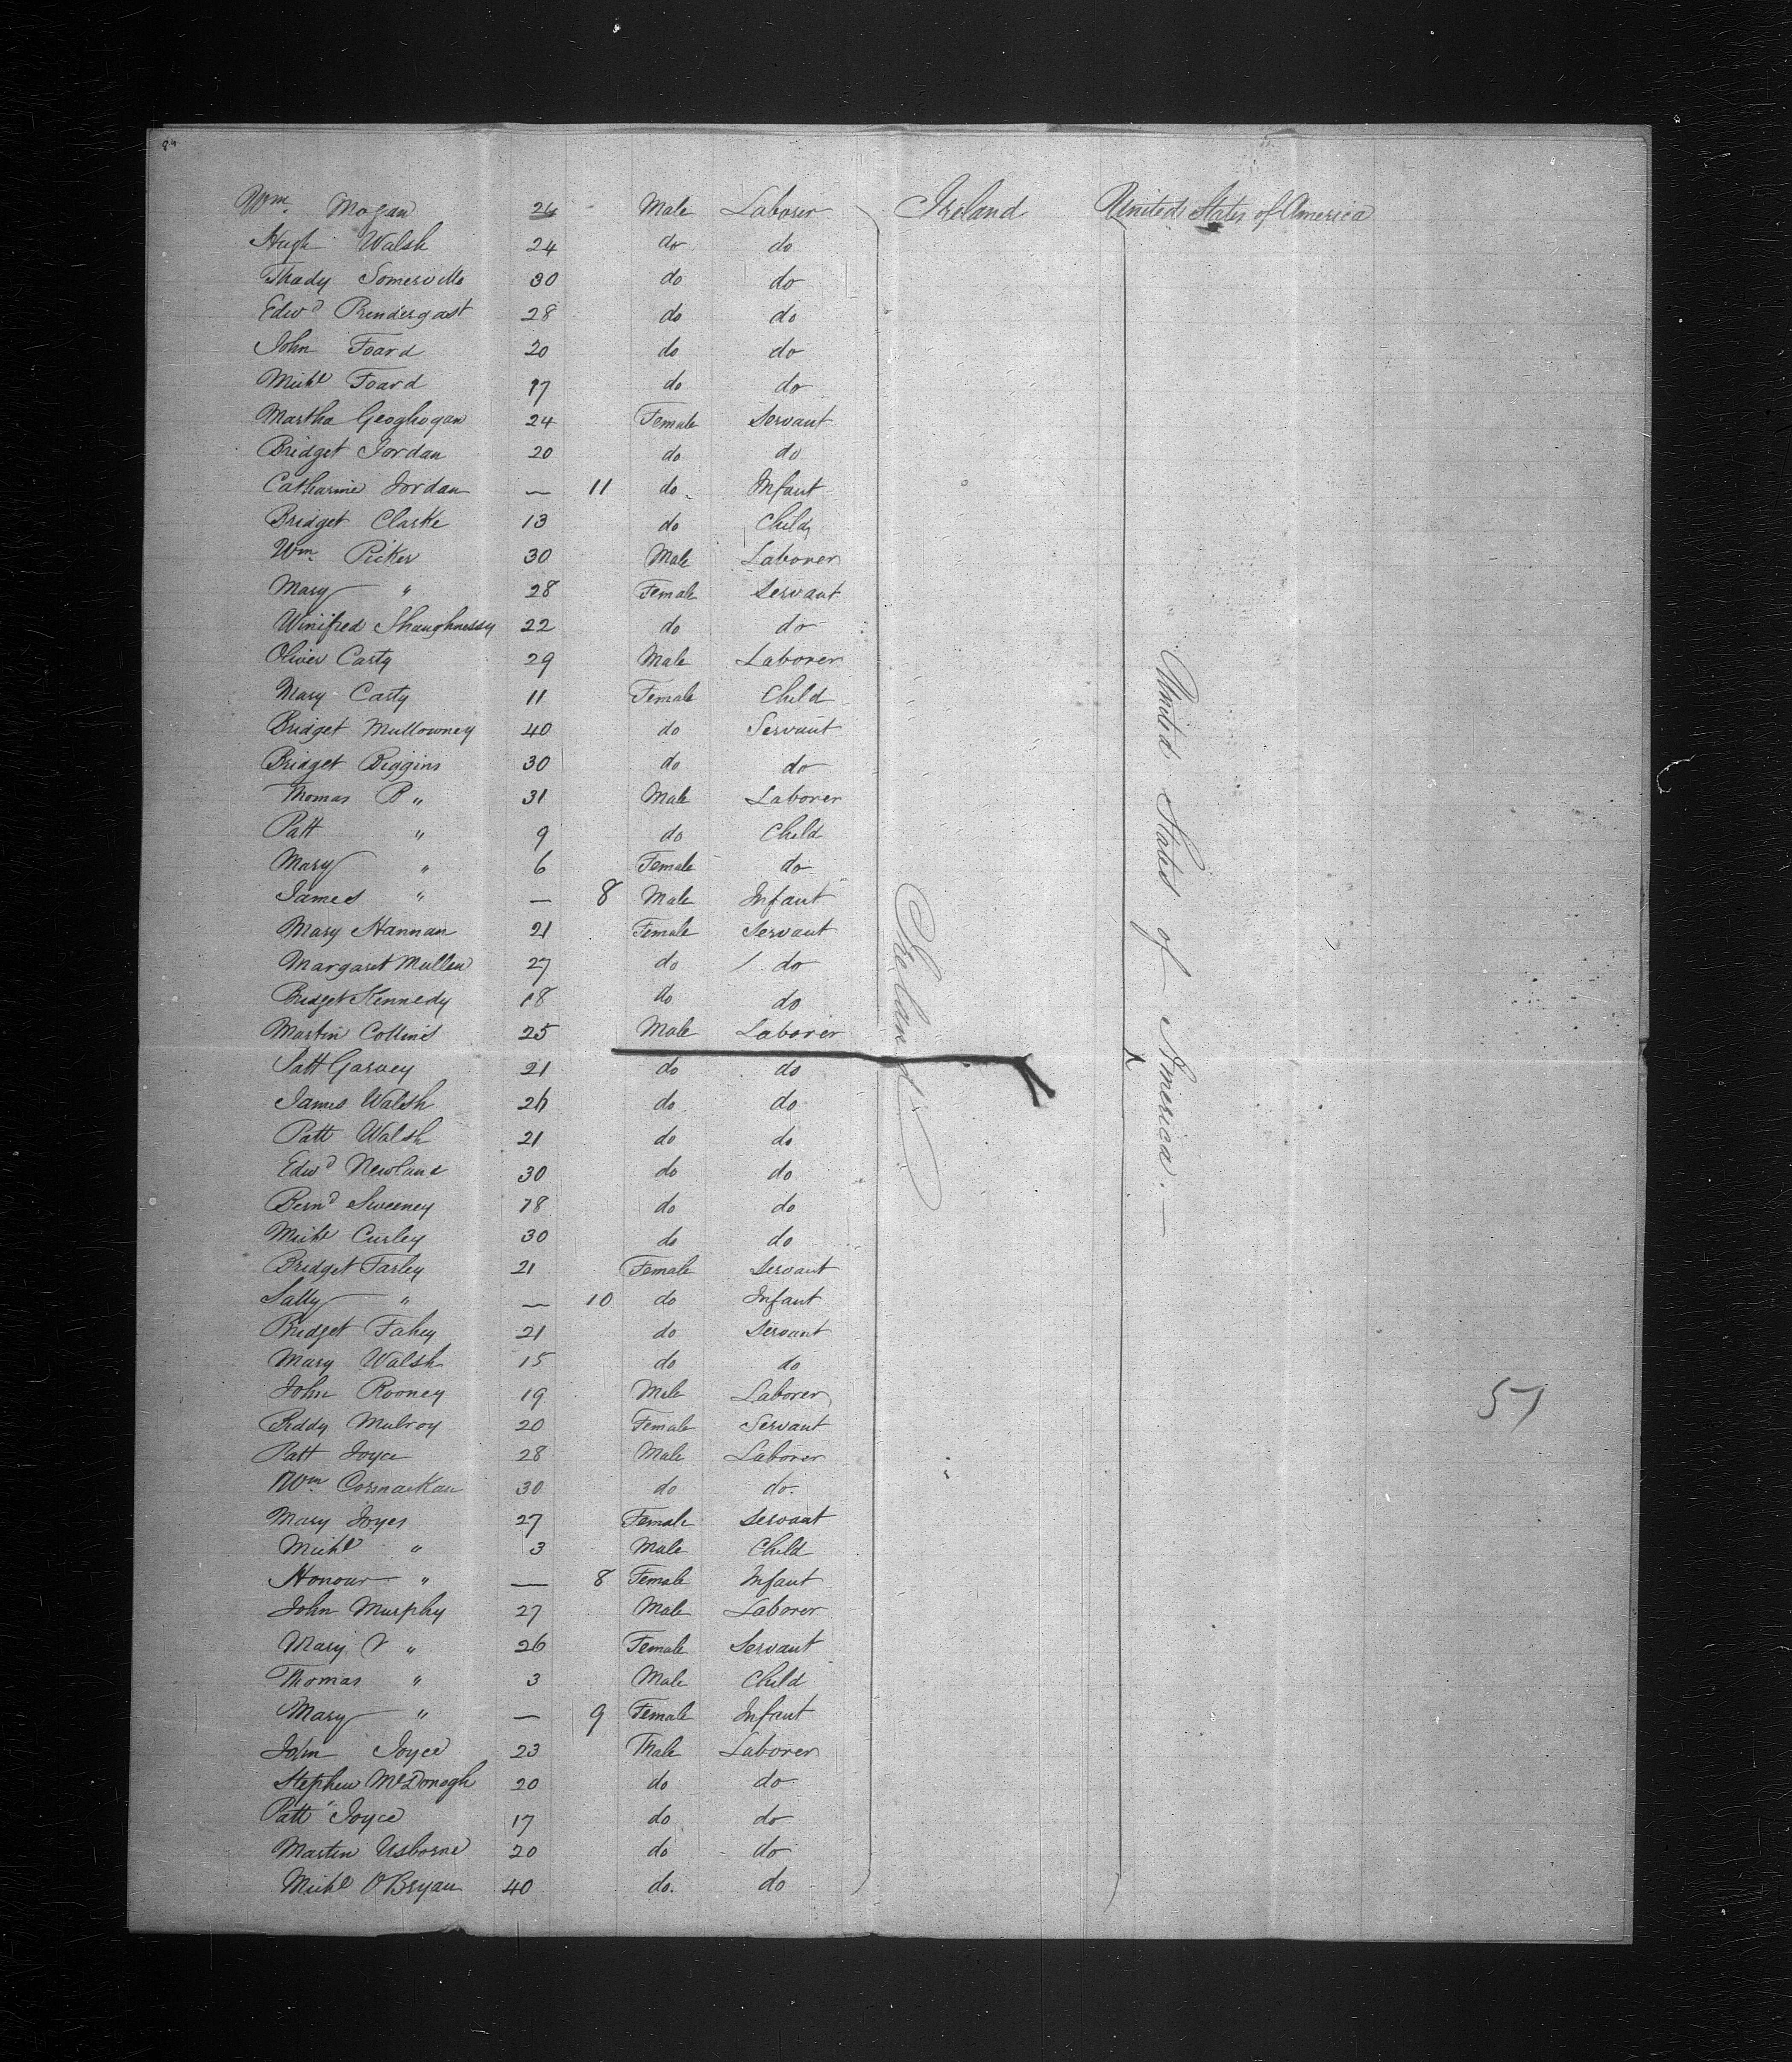 Wm. Mogan 24 Male Laborer Ireland United States of America
Hugh Walsh 24 do do
Thady Somerville 30 do do
Edwd Prendergast 28 do do
John Foard 20 do do
Michl Foard 17 do do
Martha Geoghegan 24 Female Servant
Bridget Jordan 20 do do
Catharine Jordan — 11 do Infant
Bridget Clarke 13 do Child
Wm. Picker 30 Male Laborer
Mary " 28 Female Servant
Winifred Shaughnessy 22 do do
Oliver Carty 29 Male Laborer
Mary Carty 11 Female Child
Bridget Mullowney 40 do Servant
Bridget Biggins 30 do do
Thomas B " 31 Male Laborer
Patt " 9 do Child
Mary " 6 Female do
James " — 8 Male Infant
Mary Hannan 21 Female Servant
Margaret Mullen 27 do do
Bridget Kennedy 18 do do
Martin Collins 25 Male Laborer
Patt Garvey 21 do do
James Walsh 26 do do
Patt Walsh 21 do do
Edwd Newland 30 do do
Bernd Sweeney 18 do do
Michl Curley 30 do do
Bridget Farley 21 Female Servant
Sally " — 10 do Infant
Bridget Fahey 21 do Servant
Mary Walsh 15 do do
John Rooney 19 Male Laborer
Biddy Mulroy 20 Female Servant
Patt Joyce 28 Male Laborer
Wm. Cormackan 30 do do.
Mary Joyes 27 Female Servant
Michl " 3 Male Child
Honour " — 8 Female Infant
John Murphy 27 Male Laborer
Mary " 26 Female Servant
Thomas " 3 Male Child
Mary " — 9 Female Infant
John Joyce 23 Male Laborer
Stephen McDonogh 20 do do
Patt Joyce 17 do do
Martin Usborne 20 do do
Michl O'Bryan 40 do. do
Ireland
United States of America. —
51